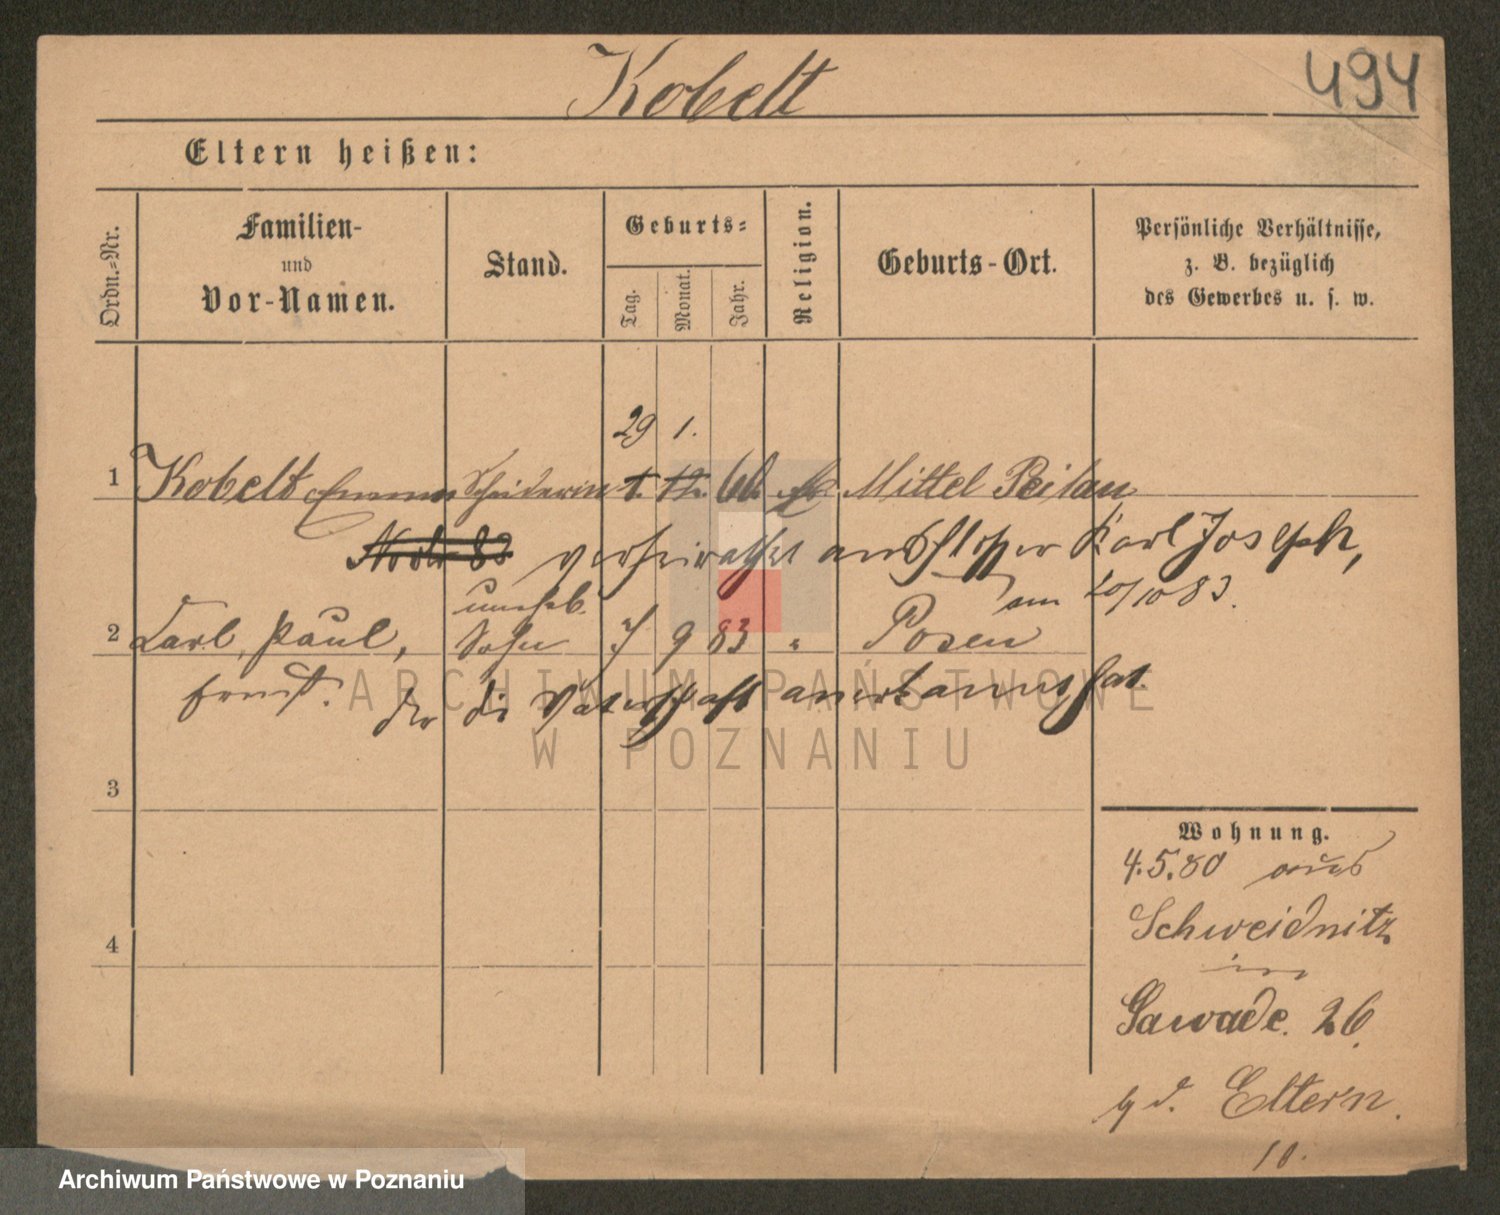 Kobelt
494
Eltern heißen:
Ordn.-Nr.
Familien-
und
Vor-Namen.
Stand.
Geburts-
Tag.
Monat.
Jahr.
Religion.
Geburts-Ort.
Persönliche Verhältnisse,
z. B. bezüglich
des Gewerbes u. s. w.
29 1.
1 Kobelt Emma Schneiderin 1. 12. 60. Mittel Peilau
verheirathet Karl Joseph,
am 20/10 83.
uneheb.
2 Carl, Paul, Sohn 7 9 83 " Posen
Ernst. der die Vaterschaft anerkannt hat.
3
4
Wohnung.
4.5.80 aus
Schweidnitz
in
Sawade. 26.
b d. Eltern.
10.
ARCHIWUM PAŃSTWOWE
W POZNANIU
Archiwum Państwowe w Poznaniu